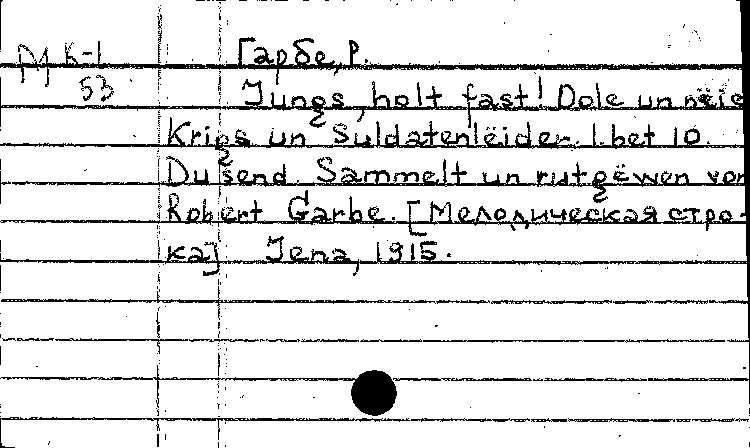 М К-1 Гарбе, Р.
53 Jungs, holt fast! Dole un nëie
Krigs un Suldatenlëider. 1. bet 10.
Dusend. Sammelt un rutgëwen von
Robert Garbe. [Мелодическая стро-
ка] Jena, 1915.